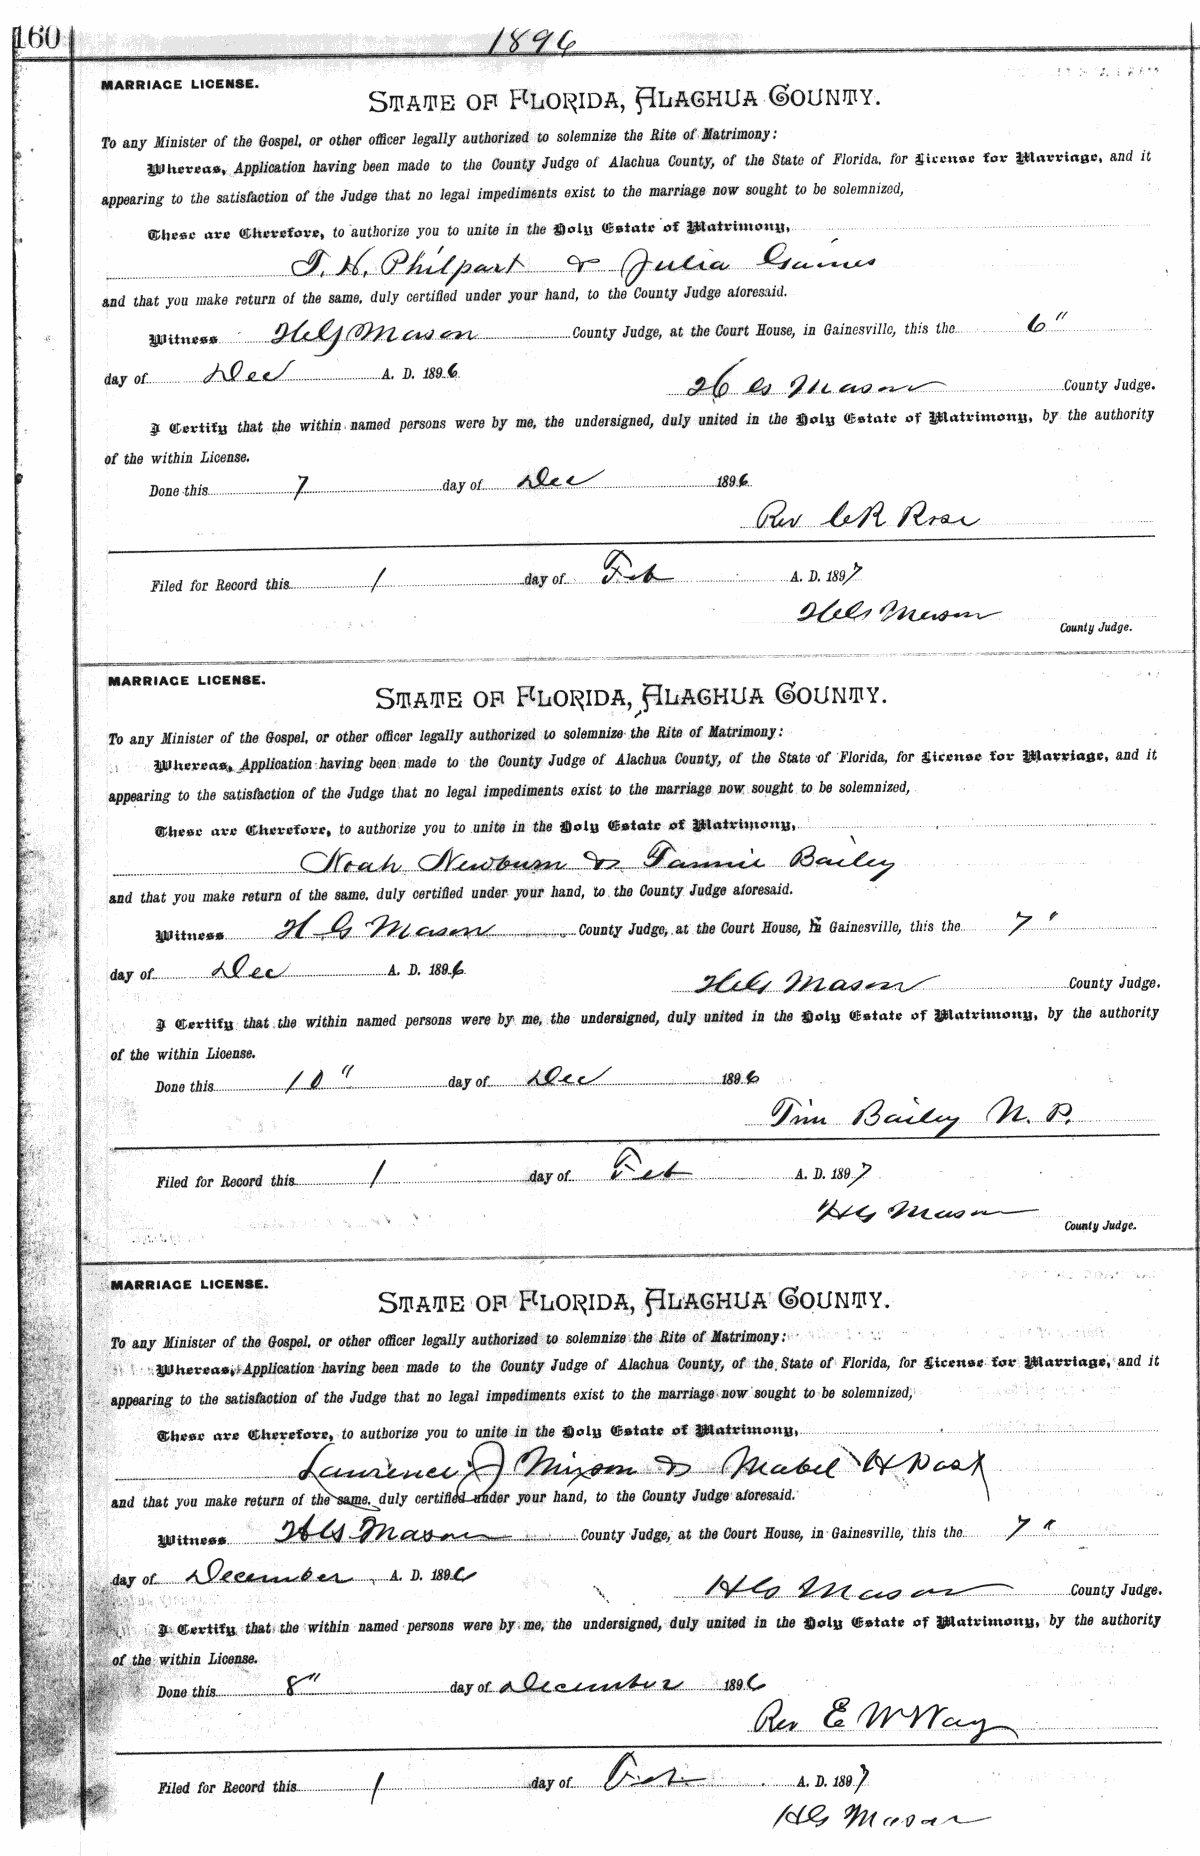 160
1896
MARRIAGE LICENSE.
STATE OF FLORIDA, ALACHUA COUNTY.
To any Minister of the Gospel, or other officer legally authorized to solemnize the Rite of Matrimony:
Whereas, Application having been made to the County Judge of Alachua County, of the State of Florida, for License for Marriage, and it
appearing to the satisfaction of the Judge that no legal impediments exist to the marriage now sought to be solemnized,
These are Therefore, to authorize you to unite in the Holy Estate of Matrimony,
T. H. Philpart & Julia Gaines
and that you make return of the same, duly certified under your hand, to the County Judge aforesaid.
Witness H G Mason County Judge, at the Court House, in Gainesville, this the 6"
day of Dec A. D. 1896
H G Mason County Judge.
I Certify that the within named persons were by me, the undersigned, duly united in the Holy Estate of Matrimony, by the authority
of the within License.
Done this 7 day of Dec 1896
Rev C R Rose
Filed for Record this 1 day of Feb A. D. 1897
H G Mason
County Judge.
MARRIAGE LICENSE.
STATE OF FLORIDA, ALACHUA COUNTY.
To any Minister of the Gospel, or other officer legally authorized to solemnize the Rite of Matrimony:
Whereas, Application having been made to the County Judge of Alachua County, of the State of Florida, for License for Marriage, and it
appearing to the satisfaction of the Judge that no legal impediments exist to the marriage now sought to be solemnized,
These are Therefore, to authorize you to unite in the Holy Estate of Matrimony,
Noah Newburn & Fannie Bailey
and that you make return of the same, duly certified under your hand, to the County Judge aforesaid.
Witness H G Mason County Judge, at the Court House, in Gainesville, this the 7"
day of Dec A. D. 1896
H G Mason County Judge.
I Certify that the within named persons were by me, the undersigned, duly united in the Holy Estate of Matrimony, by the authority
of the within License.
Done this 10" day of Dec 1896
Tim Bailey N. P.
Filed for Record this 1 day of Feb A. D. 1897
H G Mason
County Judge.
MARRIAGE LICENSE.
STATE OF FLORIDA, ALACHUA COUNTY.
To any Minister of the Gospel, or other officer legally authorized to solemnize the Rite of Matrimony:
Whereas, Application having been made to the County Judge of Alachua County, of the State of Florida, for License for Marriage, and it
appearing to the satisfaction of the Judge that no legal impediments exist to the marriage now sought to be solemnized,
These are Therefore, to authorize you to unite in the Holy Estate of Matrimony,
Lawrence J Mixson & Mabel H Post
and that you make return of the same, duly certified under your hand, to the County Judge aforesaid.
Witness H G Mason County Judge, at the Court House, in Gainesville, this the 7"
day of December A. D. 1896
H G Mason County Judge.
I Certify that the within named persons were by me, the undersigned, duly united in the Holy Estate of Matrimony, by the authority
of the within License.
Done this 8" day of December 1896
Rev E W Way
Filed for Record this 1 day of Feb A. D. 1897
H G Mason